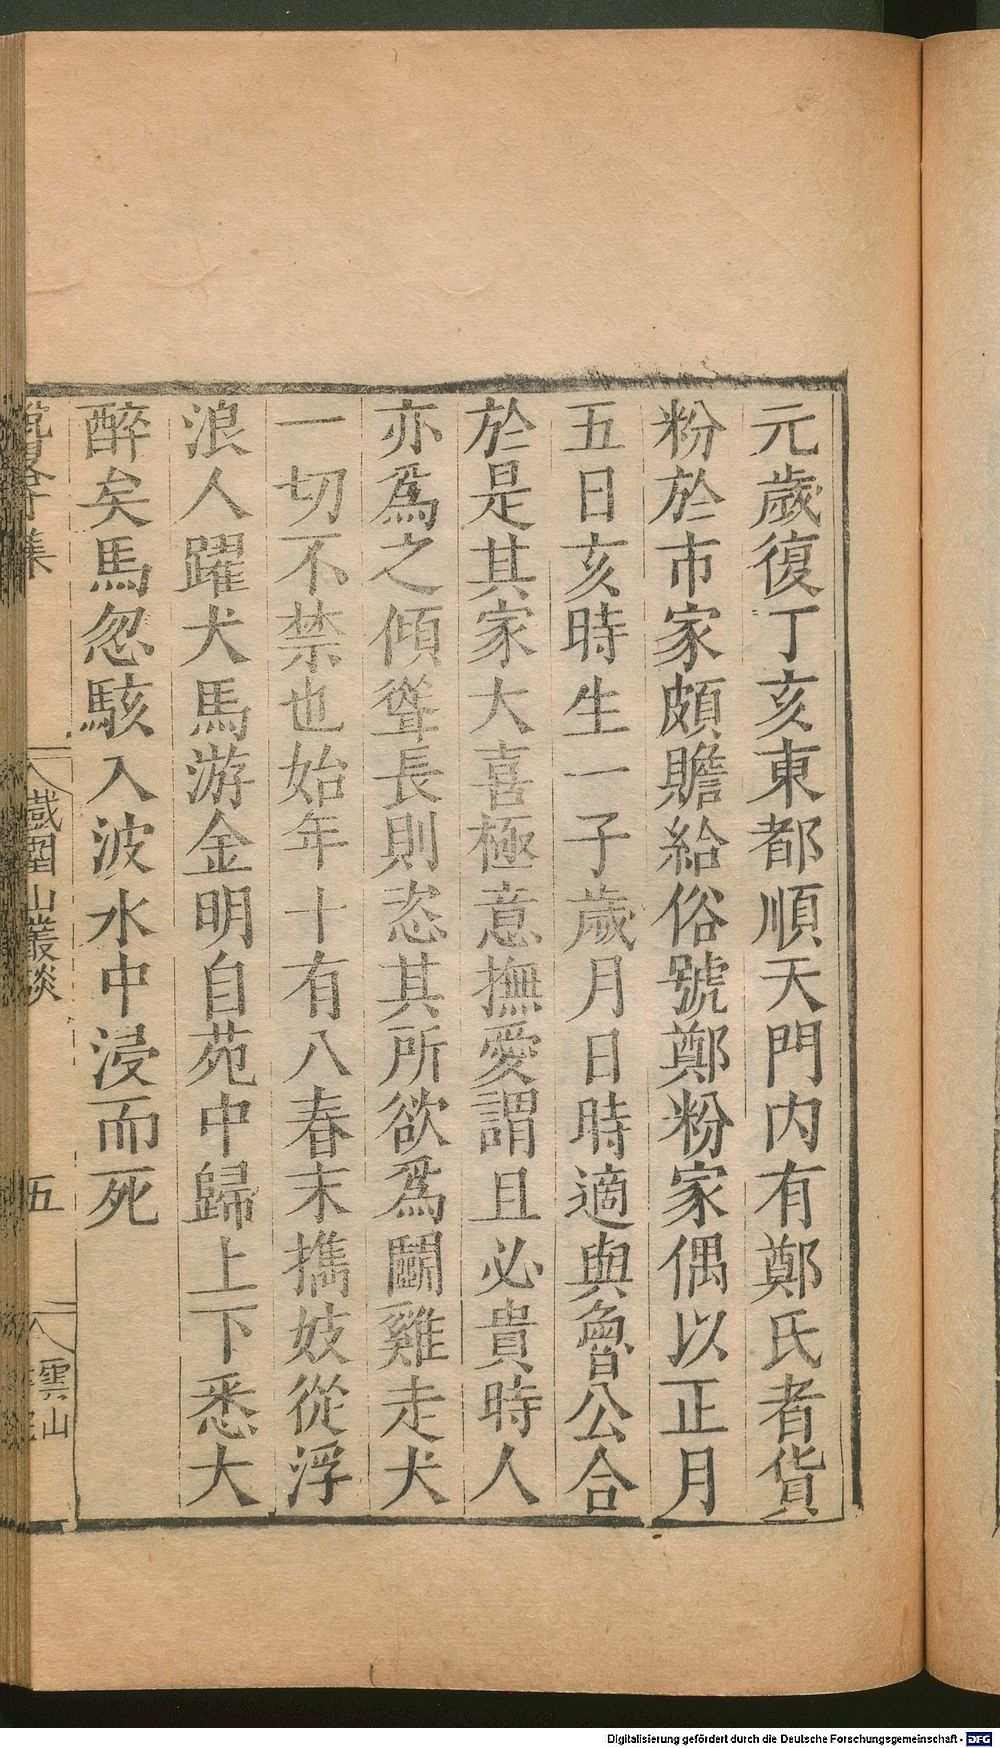 元歲復丁亥東都順天門内有鄭氏者貨
粉於市家頗贍給俗號鄭粉家偶以正月
五日亥時生一子歲月日時適與魯公合
於是其家大喜極意撫愛謂且必貴時人
亦爲之傾聳長則恣其所欲爲鬭雞走犬
一切不禁也始年十有八春末擕妓從浮
浪人躍犬馬游金明自苑中歸上下悉大
醉矣馬忽駭入波水中浸而死
集
鐵圍山叢談
五
雲山
Digitalisierung gefördert durch die Deutsche Forschungsgemeinschaft - DFG